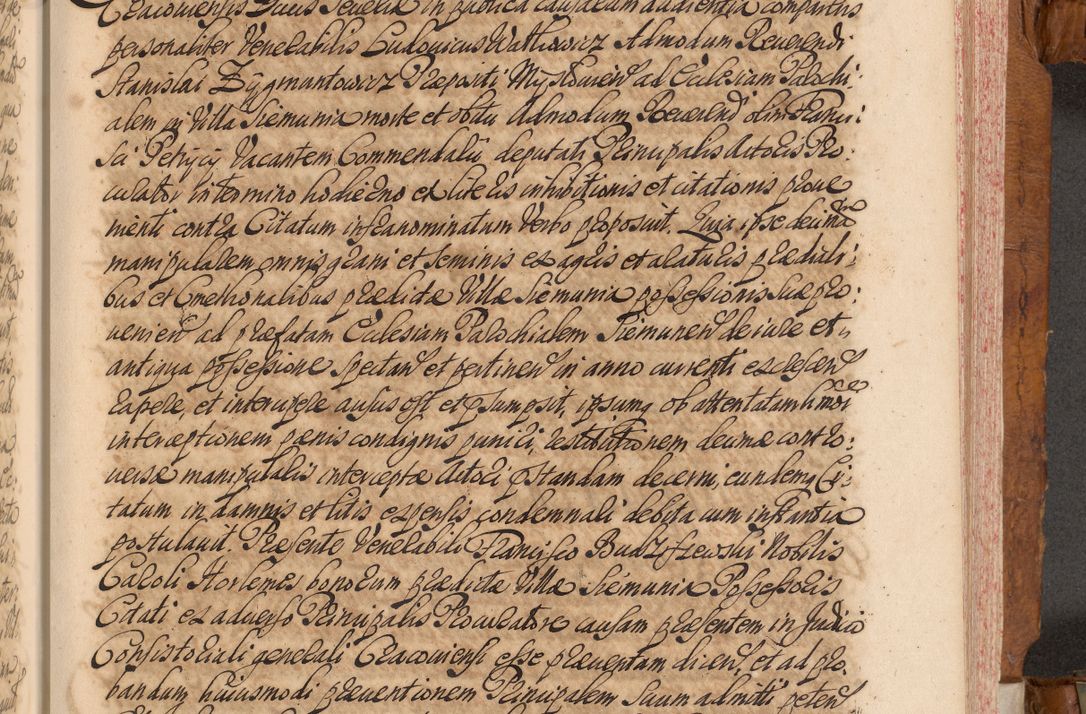 Cracoviensis Ducis Severiæ in publica causarum audientia comparens
personaliter Venerabilis Ludovicus Wathowicz Admodum Reverendi
Stanislai Zygmuntowicz Præpositi Mysłowicen ad Ecclesiam Parochi:
alem in Villa Siemunia morte et obitu Admodum Reverendi olim Franci:
sci Petrycij vacantem Commendarii deputati Principalis Actoris Pro:
curator in termino hodierno ex literis inhibitionis et citationis prove
nienti contra Citatum infranominatum Verbo proposuit, Quia ipse decimã
manipularem omnis grani et seminis ex agris et araturis prædiali:
bus et Cmethonalibus prædictæ Villæ Siemunia possessionis suæ pro:
venien ad præfatam Ecclesiam Parochialem Siemunien de iure et
antiqua possessione spectan et pertinen in anno currenti ex decen
rapere, et intercipere ausus est et præsumpsit, ipsumq ob attentatam hmõi
interceptionem pænis condignis puniri, restitutionem decimæ contro:
versæ manipularis interceptæ Actori præstandam decerni, eundemq Ci:
tatum in damnis et litis expensis condemnari debita cum instantia
postulavit. Præsente Venerabili Francisco Budziszewski Nobilis
Caroli Horlemes bonorum prædictæ Villæ Siemunia Possessoris
Citati ex adverso Principalis Procuratore causam præsentem in Judicio
Consistoriali generali Cracoviensi esse præventam dicen, et ad pro
bandum huiusmodi præventionem Principalem suum admitti peten